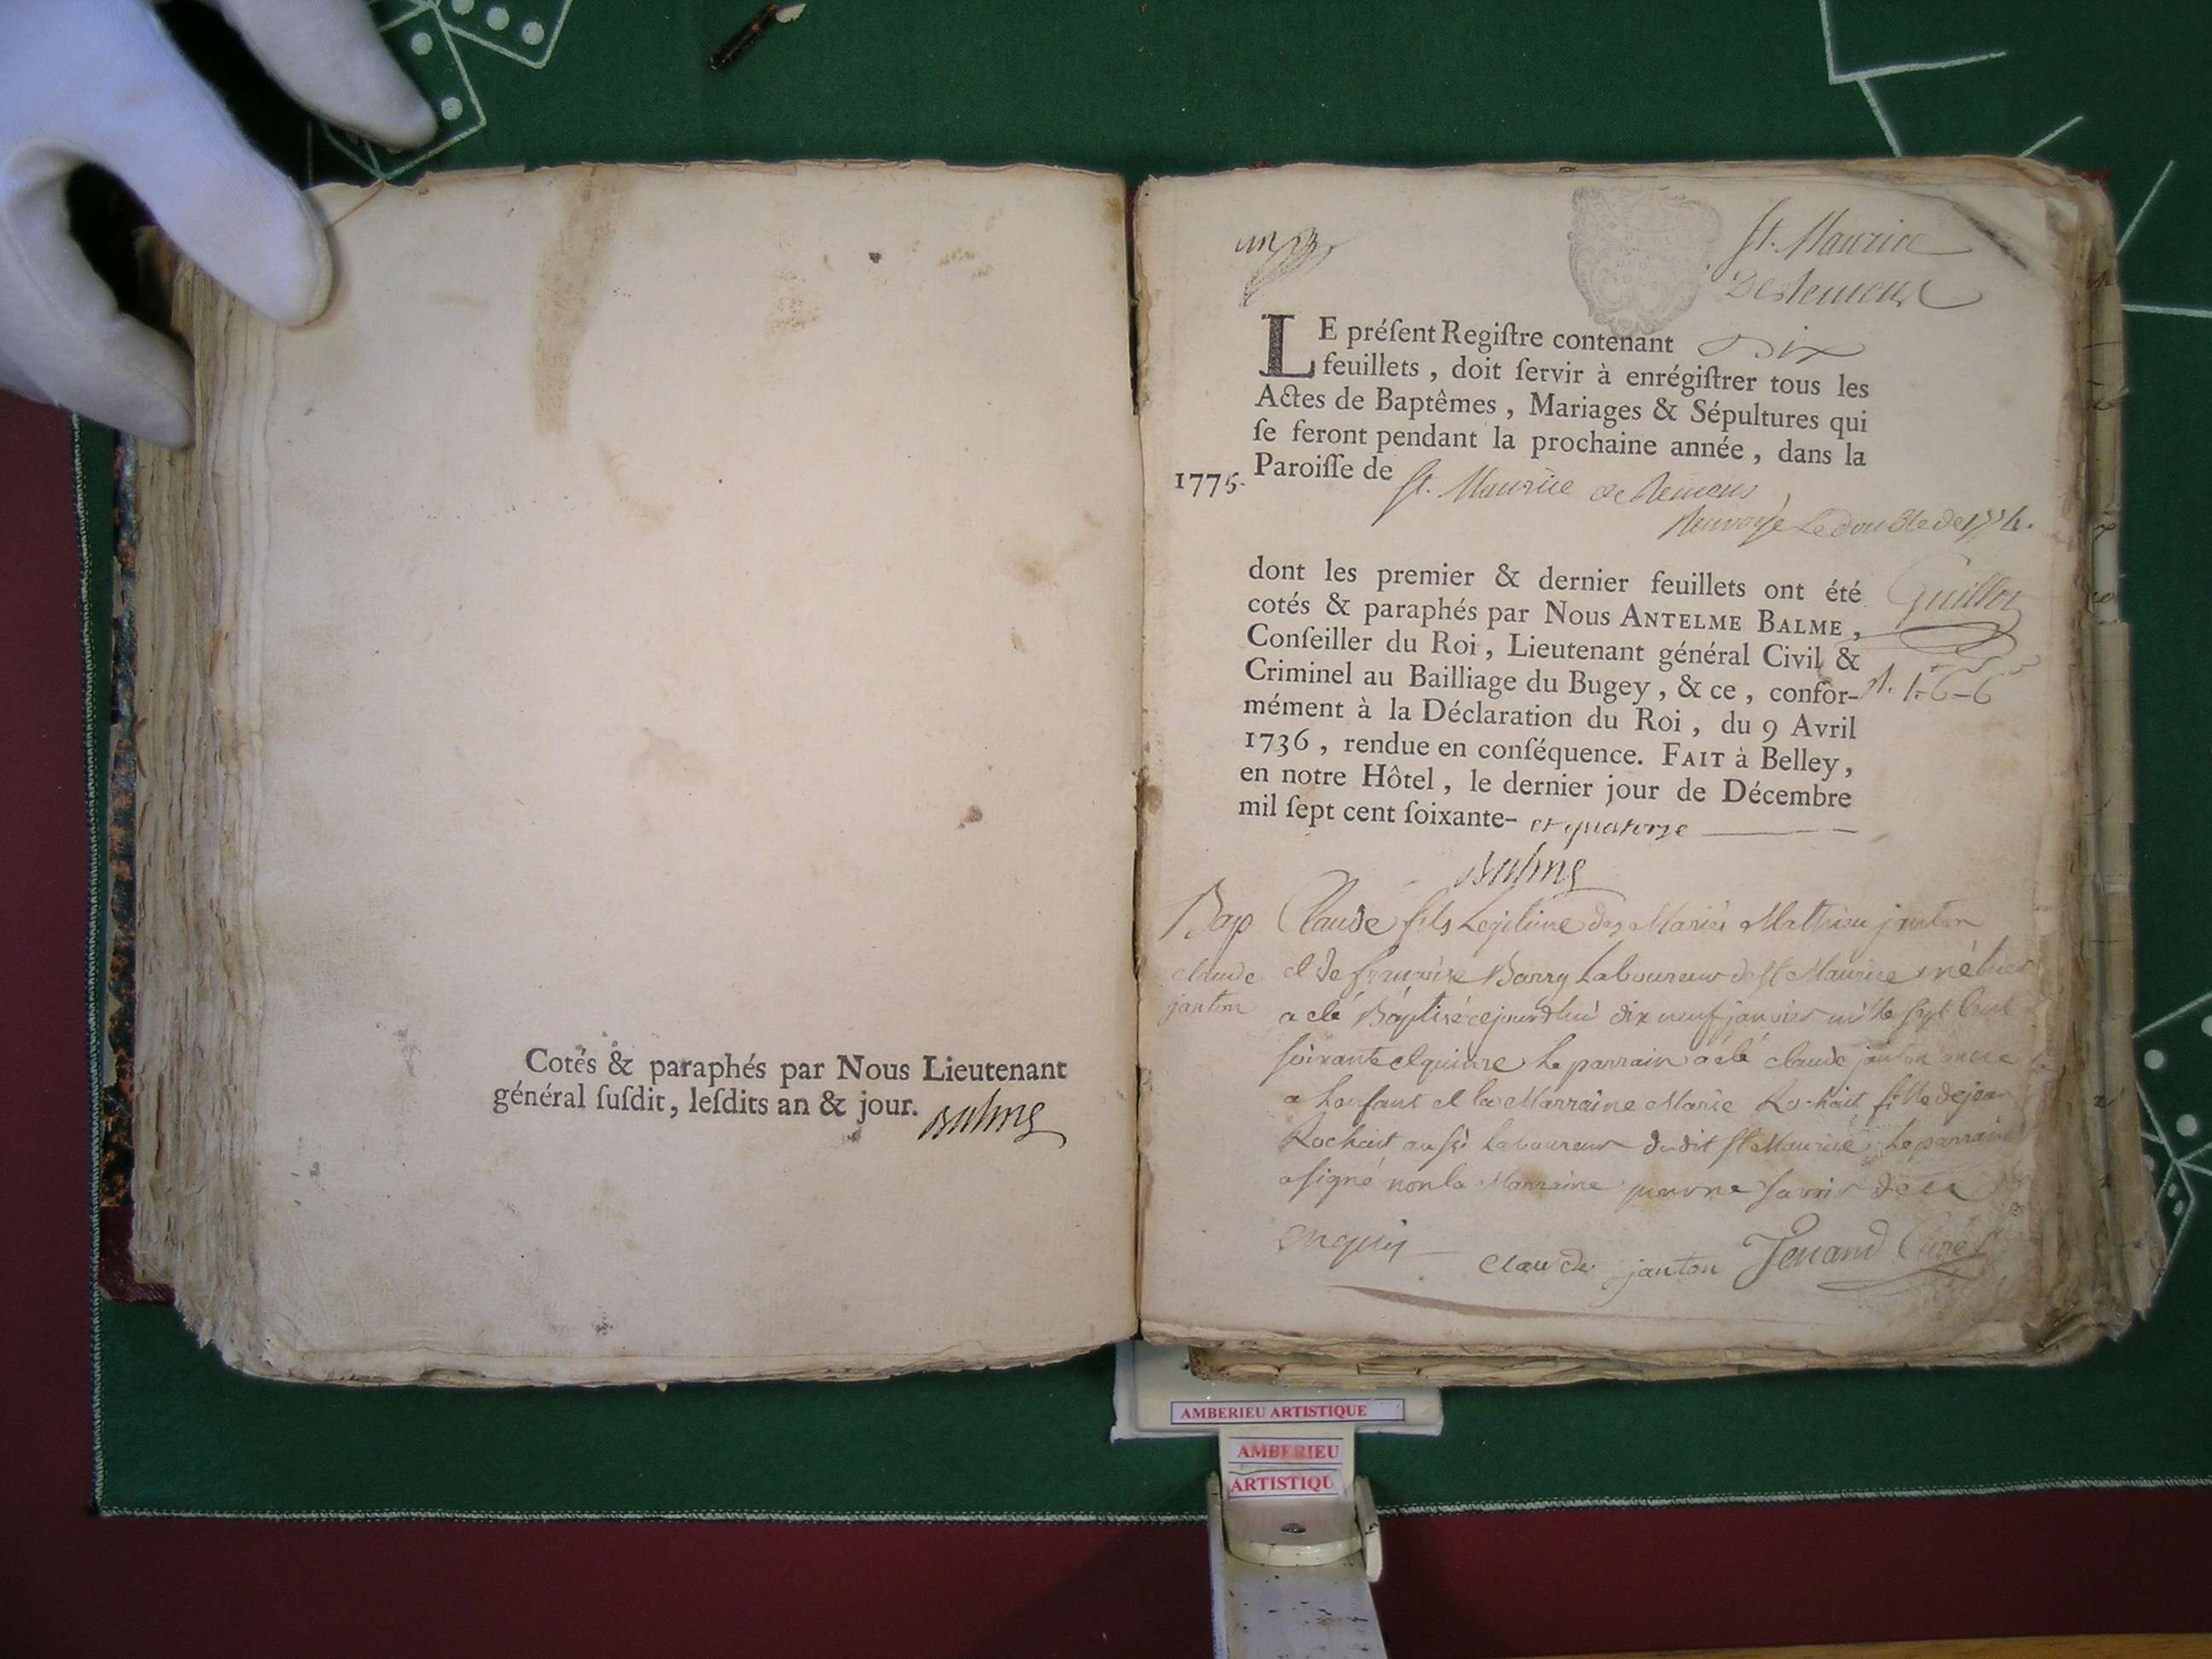 Cotés & paraphés par Nous Lieutenant
général ſuſdit, leſdits an & jour. Balme
un
St. Maurice
De Remens
LE préſent Regiſtre contenant Dix
feuillets, doit ſervir à enrégiſtrer tous les
Actes de Baptêmes, Mariages & Sépultures qui
ſe feront pendant la prochaine année, dans la
1775. Paroiſſe de St. Maurice de Remens
Le double de 1774.
dont les premier & dernier feuillets ont été
cotés & paraphés par Nous ANTELME BALME,
Conſeiller du Roi, Lieutenant général Civil &
Criminel au Bailliage du Bugey, & ce, confor-
mément à la Déclaration du Roi, du 9 Avril
1736, rendue en conſéquence. FAIT à Belley,
en notre Hôtel, le dernier jour de Décembre
mil ſept cent ſoixante- et quatorze
Guillot
1-6-6
Balme
Bap
claude
janton
Claude fils Legitime des Mariés Mathieu janton
et de françoise Barry Laboureur de St Maurice
a eté Baptisé cejourdhui dix neuf janvier mille sept Cent
soixante et quinze Le parrain a été claude janton oncle
a Lenfant et la Marraine Marie Rochait fille de jean
Rochait aussi Laboureur dudit St Maurice Le parrain
a signé non la Marraine pour ne savoir de ce
enquis
claude janton Jenand Curé
AMBERIEU ARTISTIQUE
AMBERIEU
ARTISTIQU